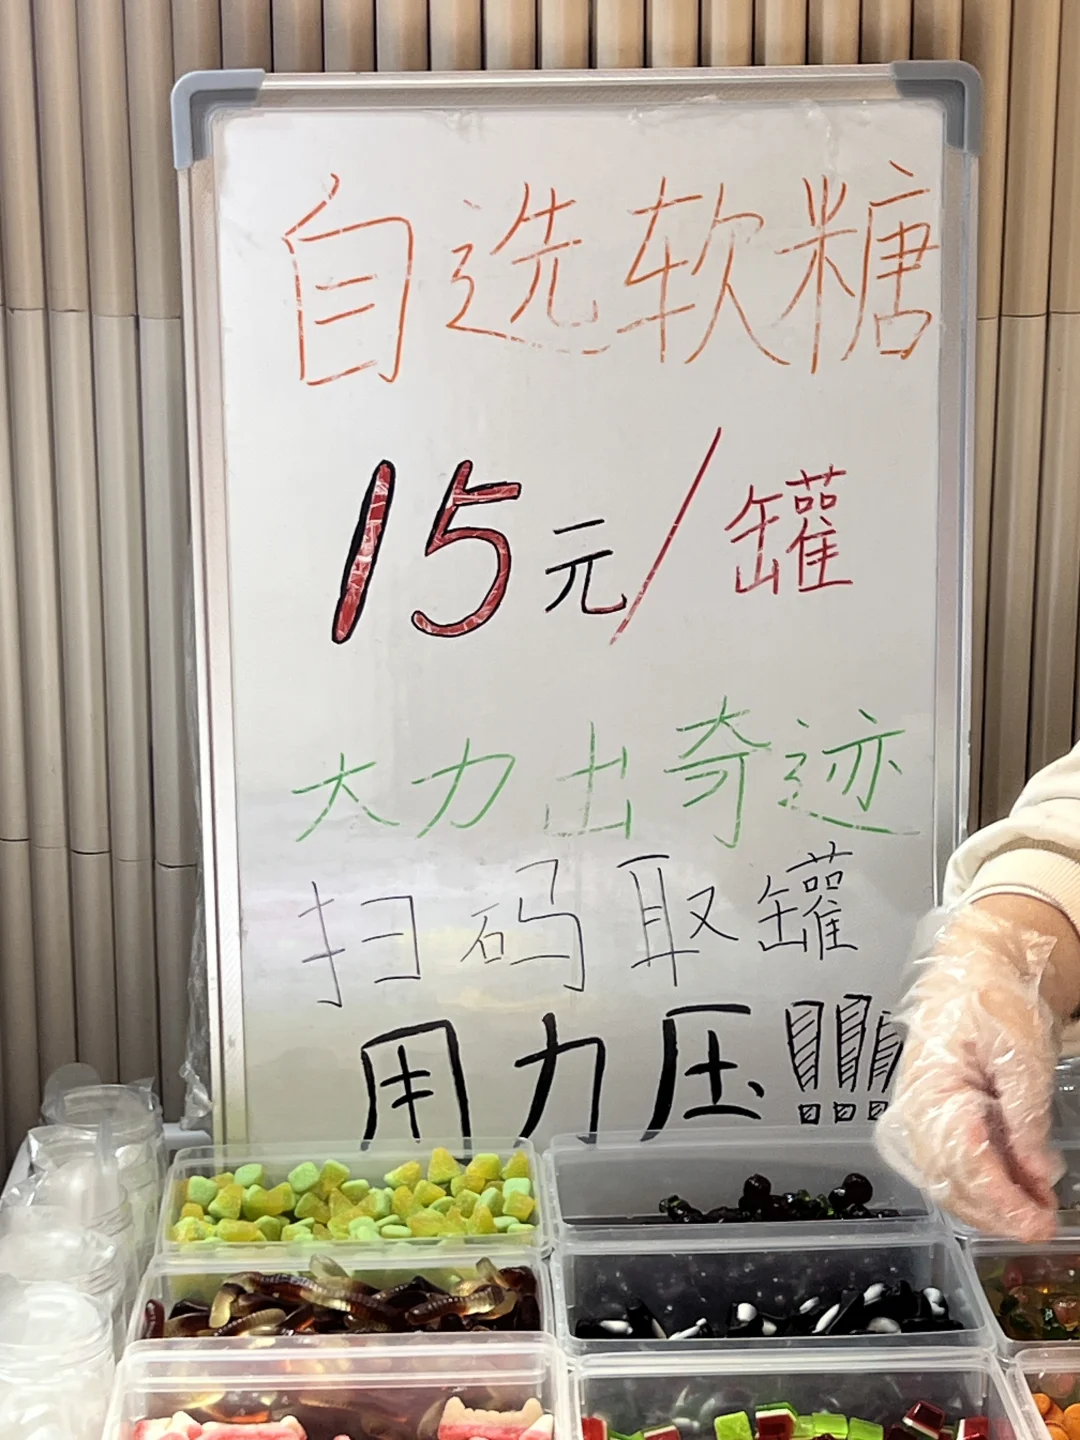 自选软糖
15元/罐
大力出奇迹
扫码取罐
用力压!!!